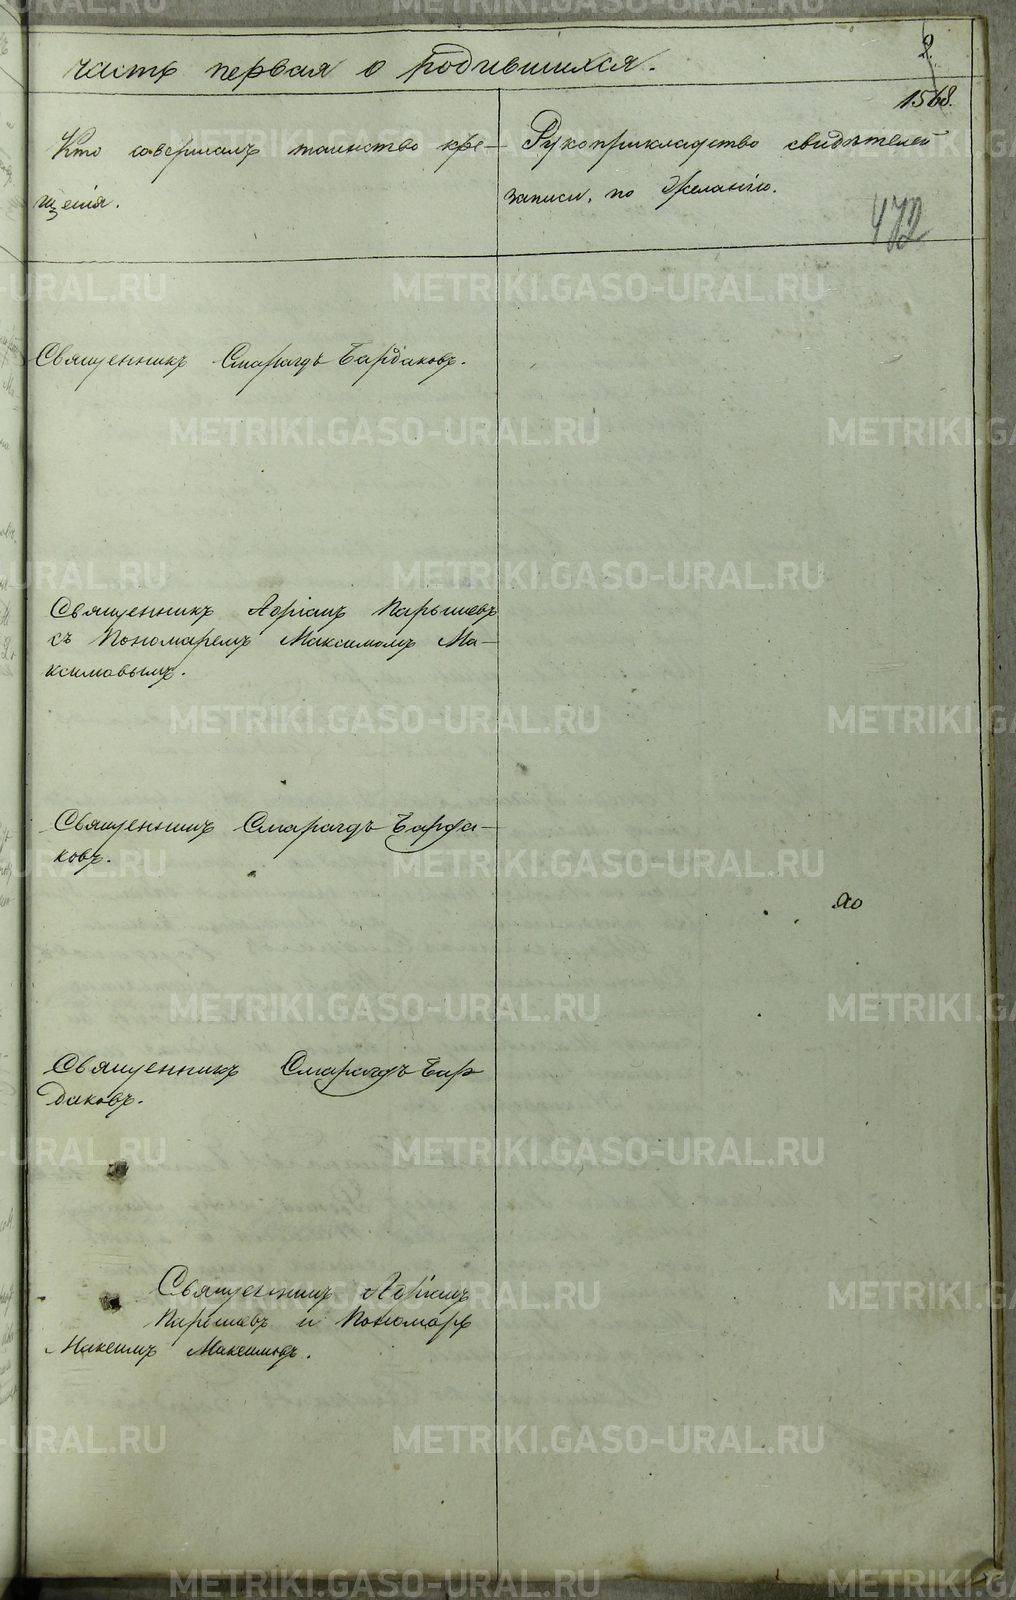 часть первая о родившихся.
2.
1568.
Кто совершалъ таинство кре-
щенія.
Рукоприкладство свидѣтелей
записи, по желанію.
472
Священникъ Смарагдъ Бардаковъ.
Священникъ Адріанъ Парышевъ
съ Пономаремъ Максимомъ Ма-
ксимовымъ.
Священникъ Смарагдъ Барда-
ковъ.
Священникъ Смарагдъ Бар
даковъ.
Священникъ Адріанъ
Парышевъ и Пономарь
Максимъ Максимовъ.
METRIKI.GASO-URAL.RU